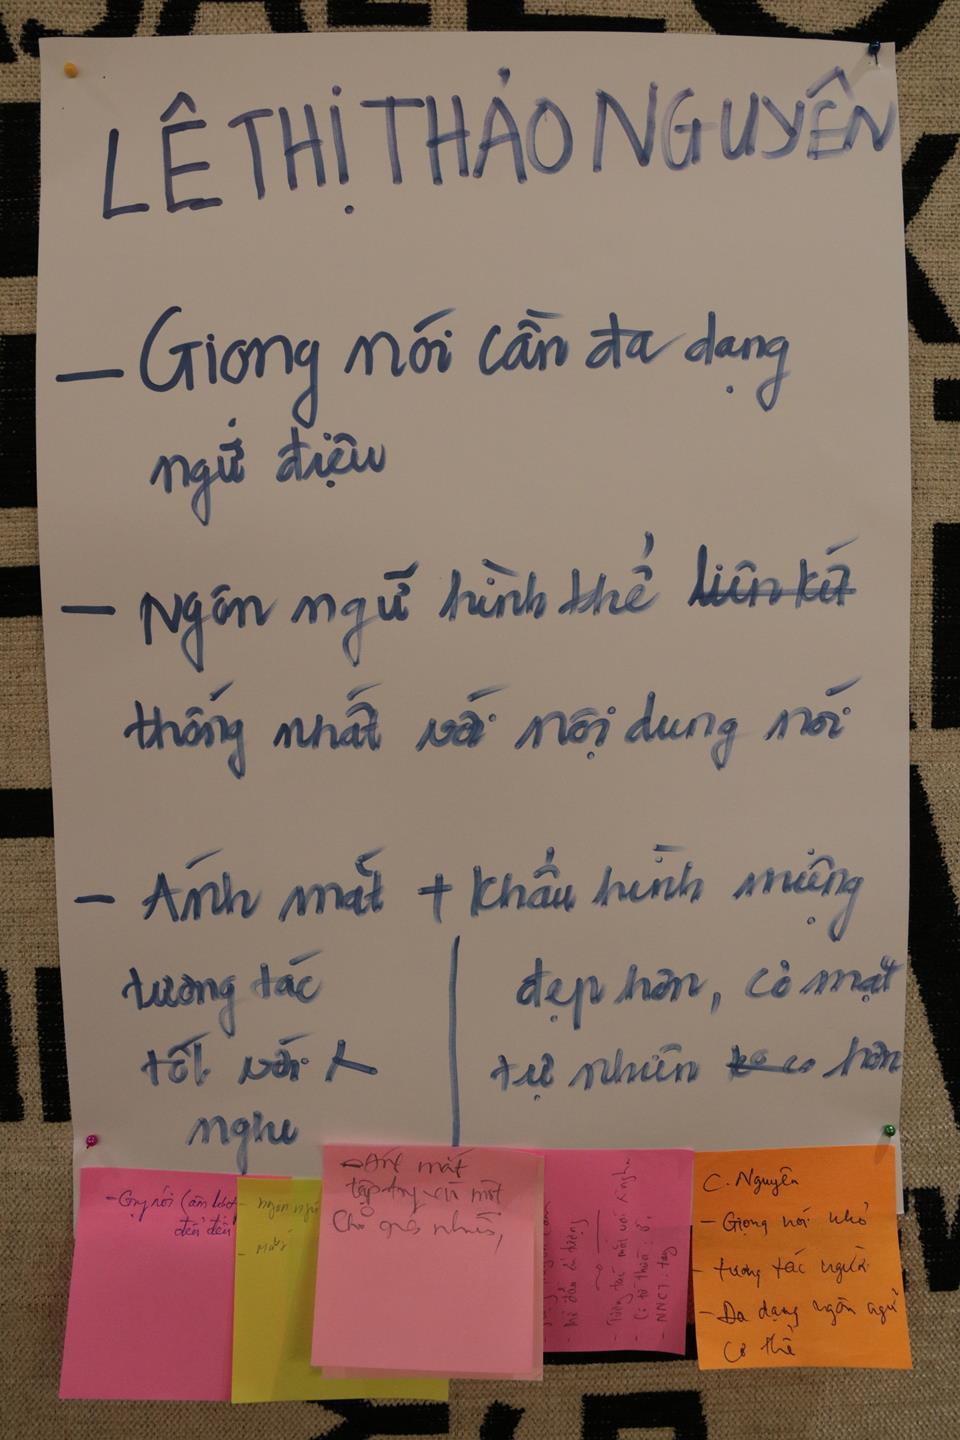 LÊ THỊ THẢO NGUYÊN
– Giọng nói cần đa dạng
ngữ điệu
– Ngôn ngữ hình thể liên kết
thống nhất với nội dung nói
– Ánh mắt + khẩu hình miệng
tương tác
tốt với
nghe
đẹp hơn, cỏ mặt
tự nhiên hơn
- Ánh mắt
tập trung
cho quá nhiều,
- ngôn ngữ
C. Nguyên
– Giọng nói nhỏ
– tương tác người
– Đa dạng ngôn ngữ
cơ thể
- NNCT. tay